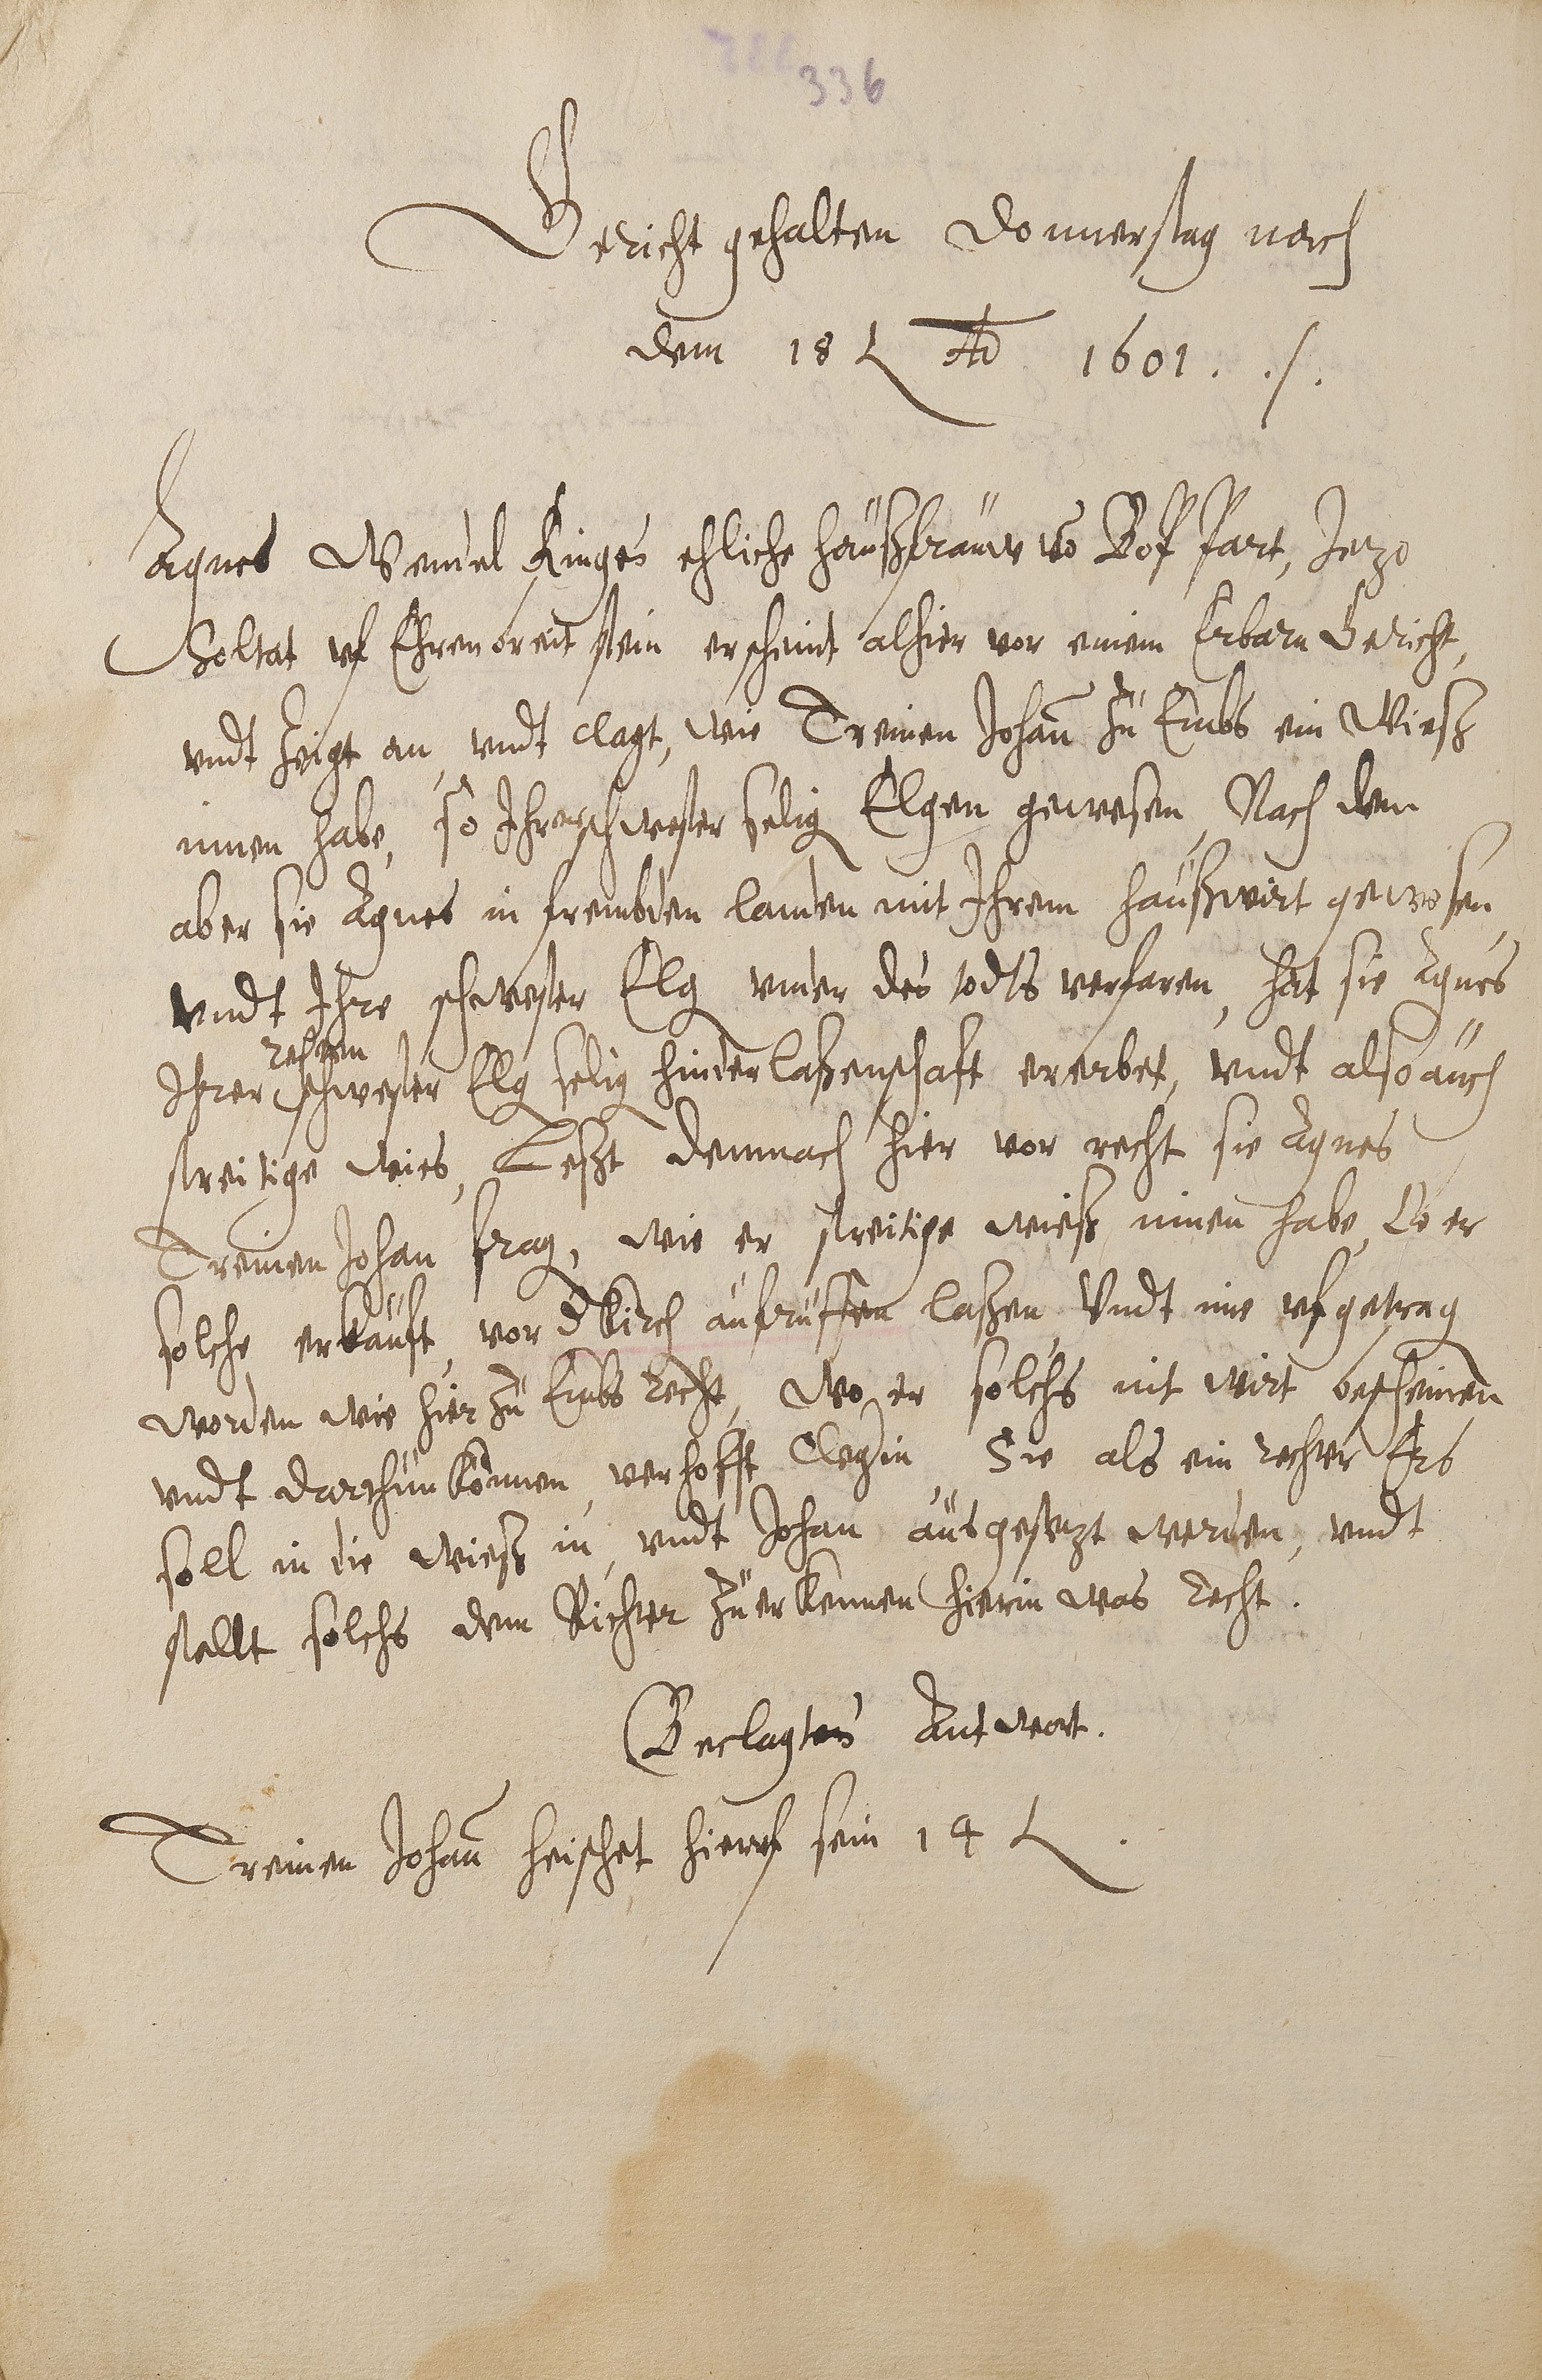 336
Gericht gehalten Donnerstag nach
dem 18 t Ao 1601 ./.
Agnes Wendel Ringes ehliche haußfrauw vo Boffart, Jezo
Soltat vf Ehrenbreitstein erscheint alhier vor einem Erbarn Gericht,
vndt Zeigt an, vndt clagt, wie Treinen Johan Zu Embs ein Wieß
innen habe, so Ihrer schwester selig Elgen gewesen, Nach dem
aber sie Agnes in frembden landen mit Ihrem haußwirt gewesen,
vndt Ihre schwester Elg vnder des todts verfaren, hat sie Agnes
rechten
Ihrer schwester Elg selig hinderlaßenschaft ererbet, vndt also auch
streitige wies, Leßt demnach hier vor recht sie Agnes
Treinen Johan frag, wie er streitige wieß innen habe, Ob er
solche erkauft, vor d Kirch aufruffen laßen Vndt ime vfgetrag
worden wie hier Zu Embs recht, wo er solchs nit wirt bescheinen
vndt darthun können, verhofft Clegin Sie als ein rechter Erb
soll in die wieß in, vndt Johan ausgesezt werden, vndt
stellt solchs dem Richter Zu erkennen hierin was recht.
Beclagten Antwort.
Treinen Johan heischet hieruf sein 14 t.